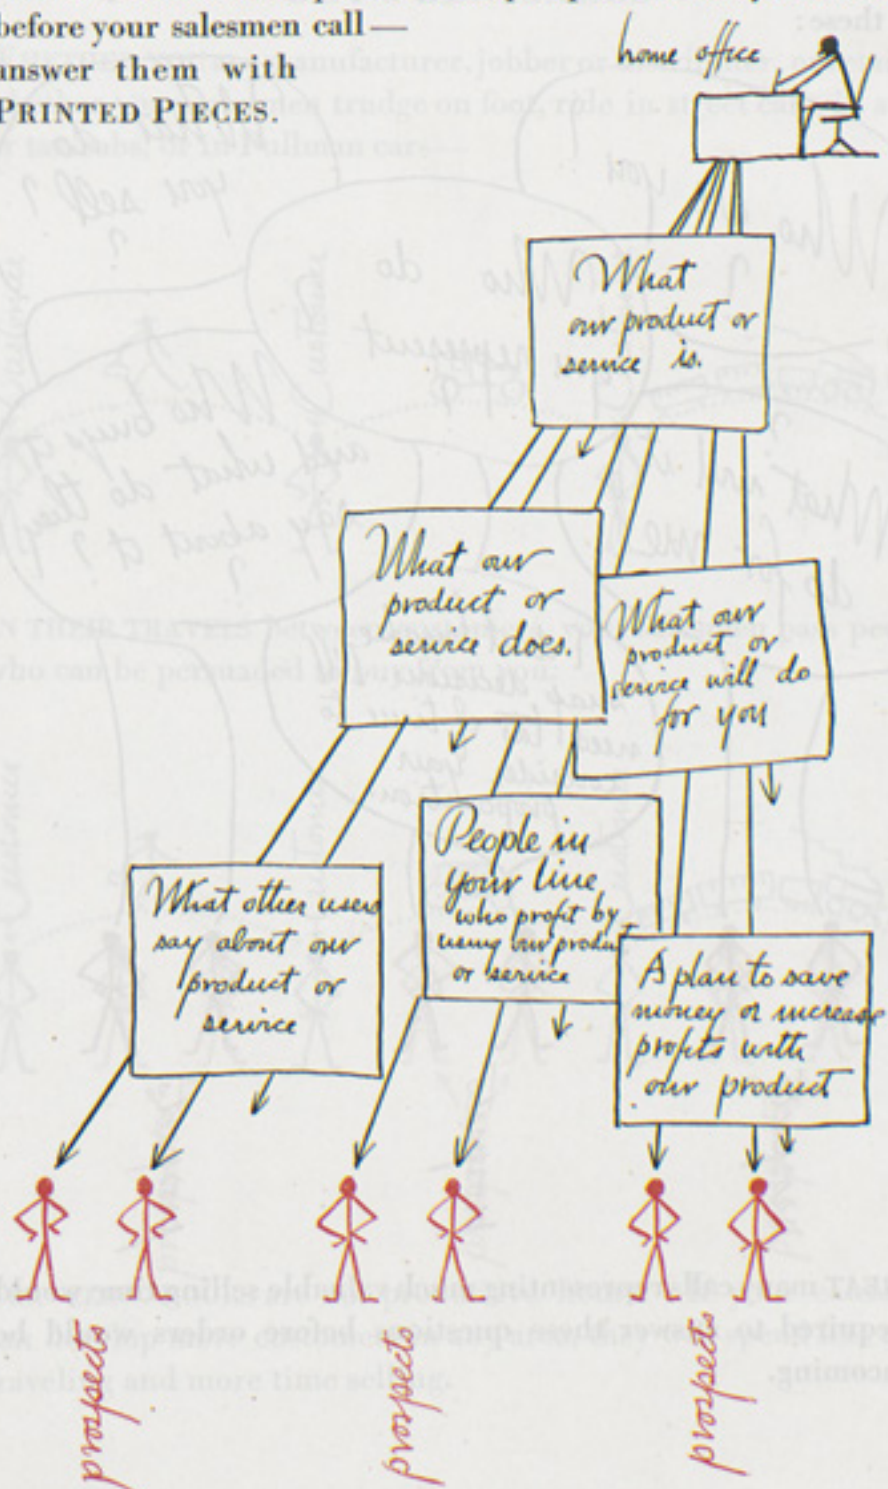 before your salesmen call—
answer them with
PRINTED PIECES.
home office
What
our product or
service is.
What our
product or
service does.
What our
product or
service will do
for you
People in
your line
who profit by
using our product
or service
What other users
say about our
product or
service
A plan to save
money or increase
profits with
our product
prospects
prospects
prospects